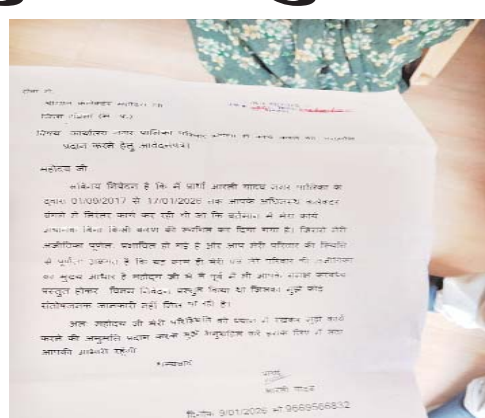 सेवा में,
श्रीमान कलेक्टर महोदय जी
जिला (म. प्र.)
विषय कार्यालय नगर पालिका परिषद में कार्य करने की अनुमति
प्रदान करने हेतु आवेदनपत्र।
महोदय जी
सविनय निवेदन है कि मैं प्रार्थी आरती यादव नगर पालिका के
द्वारा 01/09/2017 से 17/01/2026 तक आपके अधिनस्थ कलेक्टर
बंगले में निरंतर कार्य कर रही थी जो कि वर्तमान में मेरा कार्य
अचानक बिना किसी कारण की स्थगित कर दिया गया है। जिससे मेरी
अजीविका पूर्णतः प्रभावित हो गई है और आप मेरी परिवार की स्थिति
से पूर्णतः अवगत है कि यह काम ही मेरी एवं मेरे परिवार की अजीविका
का मुख्य आधार है महोदय जी से मैं पूर्व में भी आपके समक्ष
प्रस्तुत होकर विनम्र निवेदन प्रस्तुत किया था जिसका मुझे कोई
संतोषजनक जानकारी नहीं मिल पा रही है।
अतः महोदय जी मेरी परिस्थिति को ध्यान में रखकर मुझे कार्य
करने की अनुमति प्रदान करके मुझे अनुग्रहित करें इसके लिए मैं सदा
आपकी आभारी रहूंगी
धन्यवाद
आरती यादव
दिनांक 9/01/2026 मो.9669566832